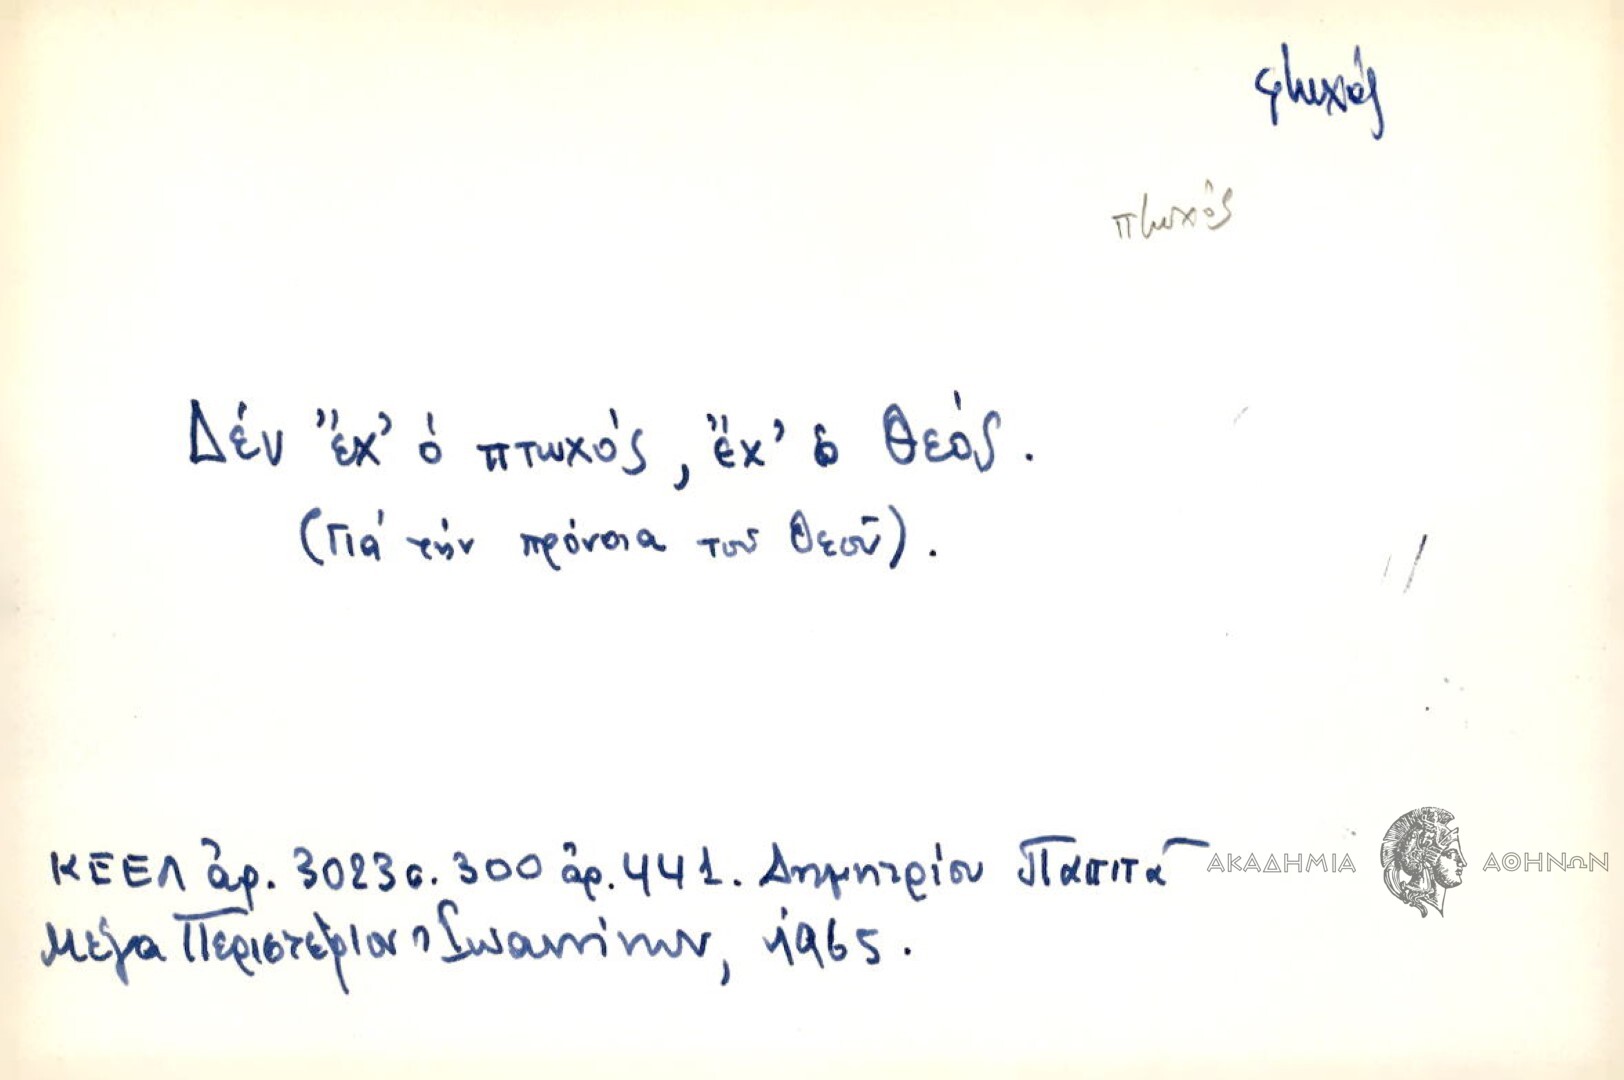 φτωχός
πτωχός
Δέν ἔχ' ὁ πτωχός, ἔχ' ὁ Θεός.
(Γιά τήν πρόνοια τοῦ Θεοῦ).
ΚΕΕΛ ἀρ. 3023 σ. 300 ἀρ. 441. Δημητρίου Παππᾶ
Μέγα Περιστέριον Ἰωαννίνων, 1965.
ΑΚΑΔΗΜΙΑ ΑΘΗΝΩΝ